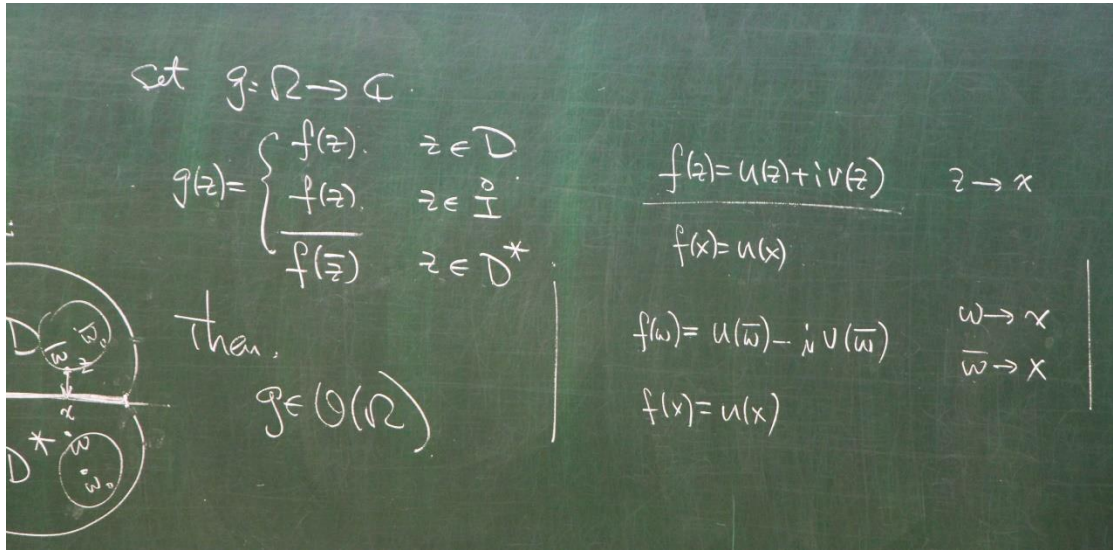 Set g: Ω → ℂ.
g(z)= { f(z). z ∈ D
f(z). z ∈ I̊
\overline{f(\overline{z})} z ∈ D*
Then.
g ∈ O(Ω)
D w̄ w̄₀
z
x
D* w
w₀
f(z)=u(z)+iv(z) z → x
f(x)=u(x)
f(w)= u(w̄)- i v(w̄) w → x
w̄ → x
f(x)=u(x)